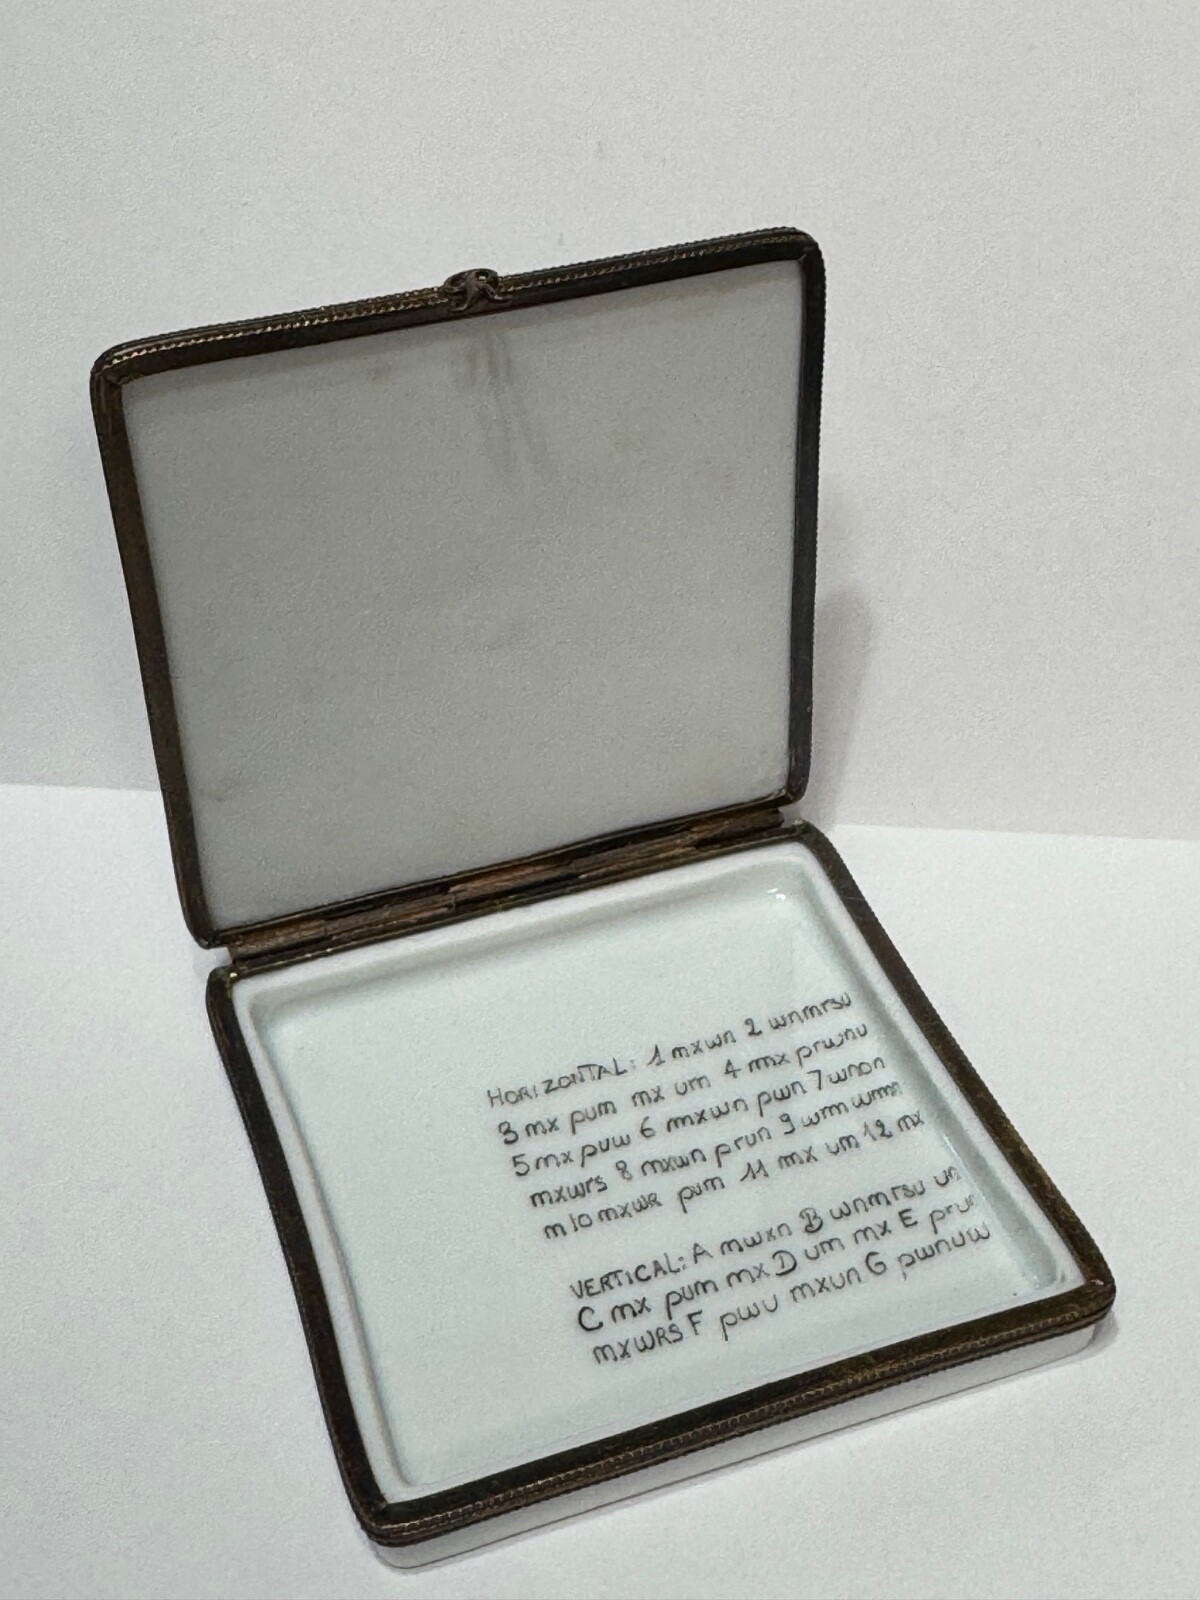 HORIZONTAL: 1 mxwn 2 wnmrsu
3 mx pum mx um 4 mx prwnu
5 mx puw 6 mxwn pwn 7 wnon
mxwrs 8 mxwn prun 9 wrm wrmn
m 10 mxwr pum 11 mx um 12 mx
VERTICAL: A mwxn B wnmrsu un
C mx pum mx D um mx E prur
mxwrs F pwu mxun G pwnuw